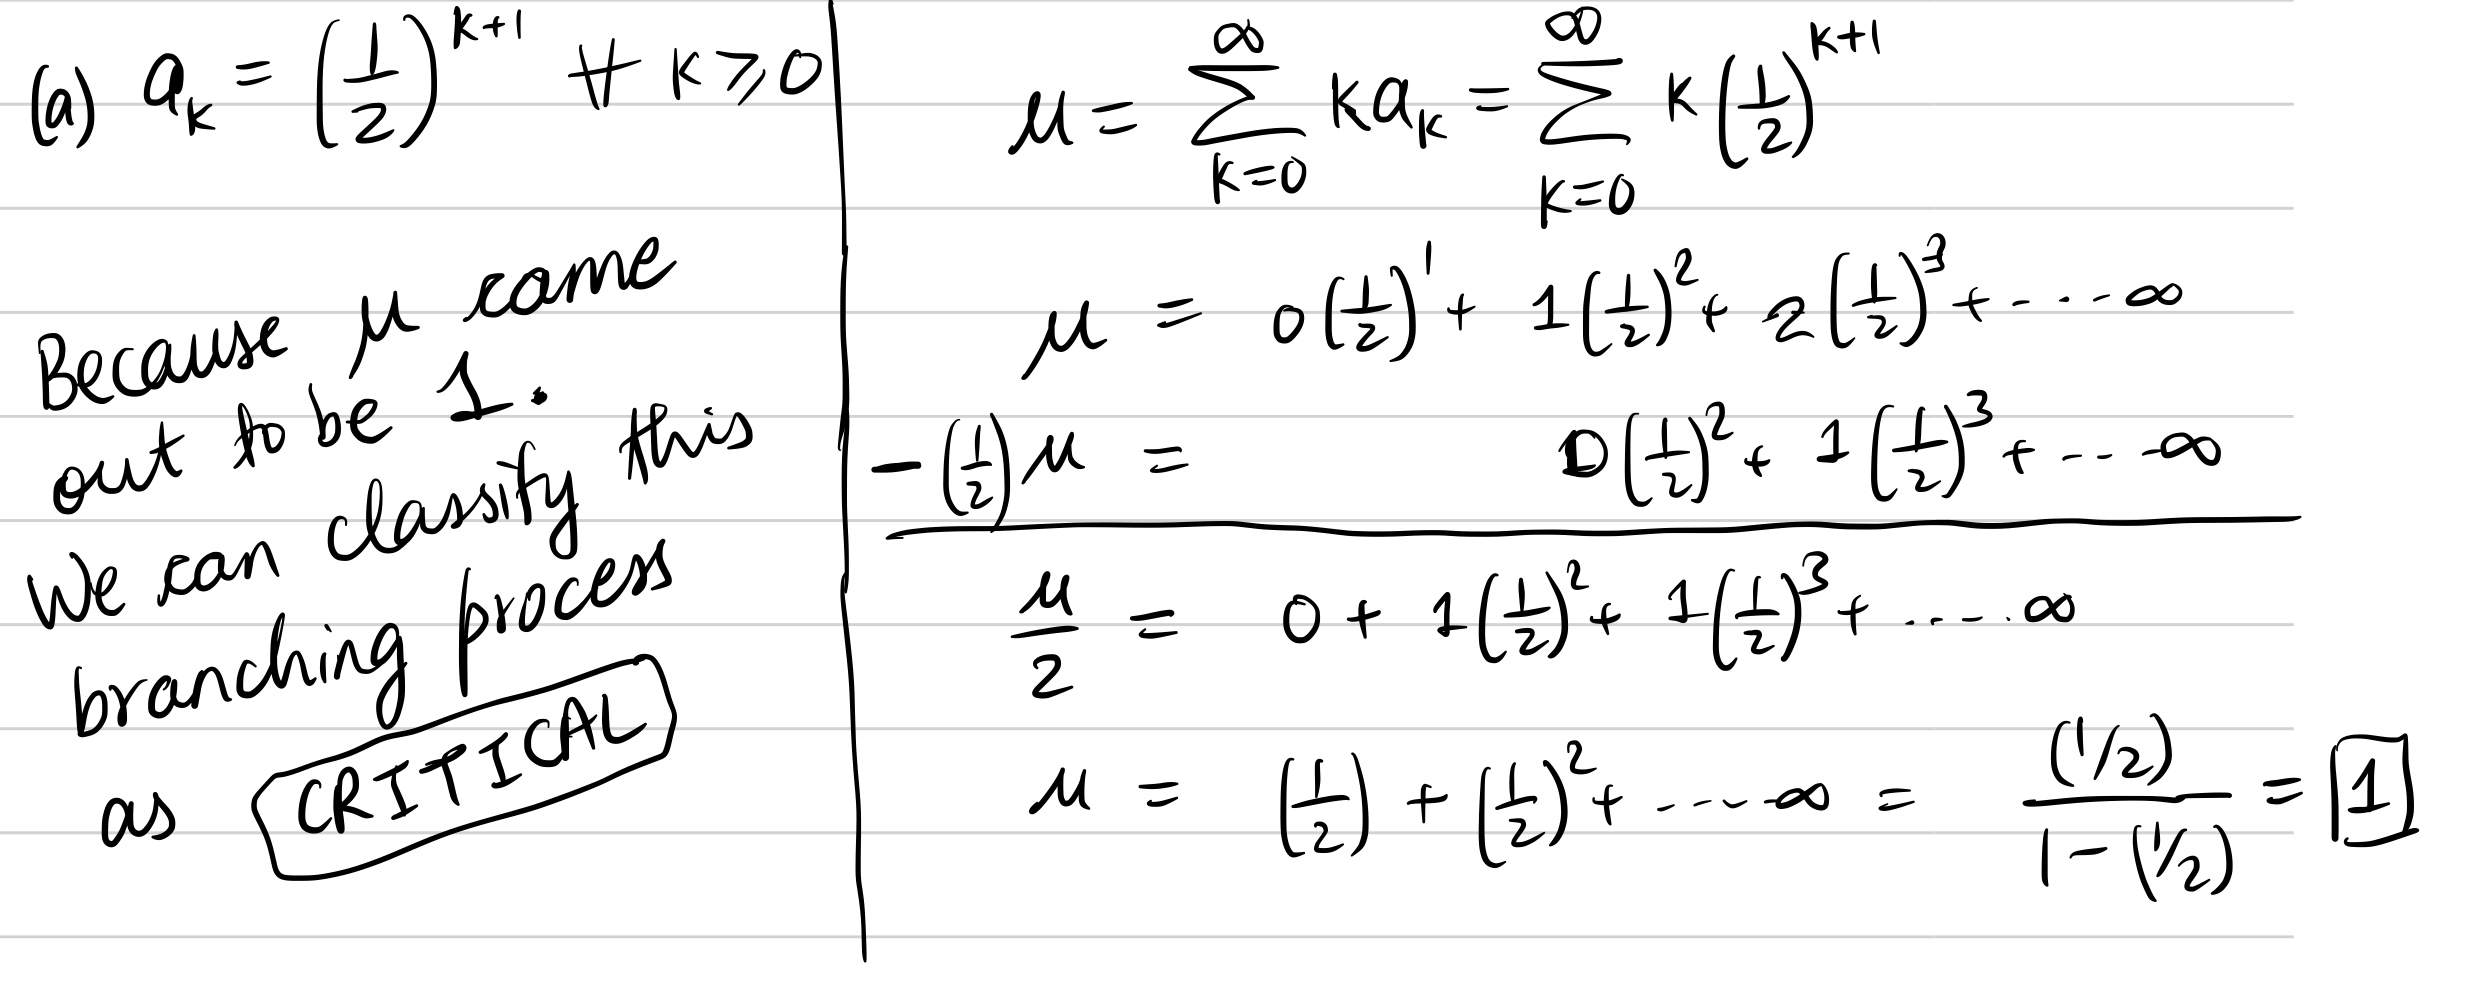 (a) a_k = (1/2)^{k+1} ∀ k ⩾ 0
Because μ came
out to be 1.
we can classify this
branching process
as CRITICAL
μ = ∑_{k=0}^{∞} k a_k = ∑_{k=0}^{∞} k (1/2)^{k+1}
μ = 0(1/2)^1 + 1(1/2)^2 + 2(1/2)^3 + ---- ∞
-(1/2)μ = 0(1/2)^2 + 1(1/2)^3 + --- ∞
μ/2 = 0 + 1(1/2)^2 + 1(1/2)^3 + ..... ∞
μ = (1/2) + (1/2)^2 + ---- ∞ = (1/2)/(1-(1/2)) = 1